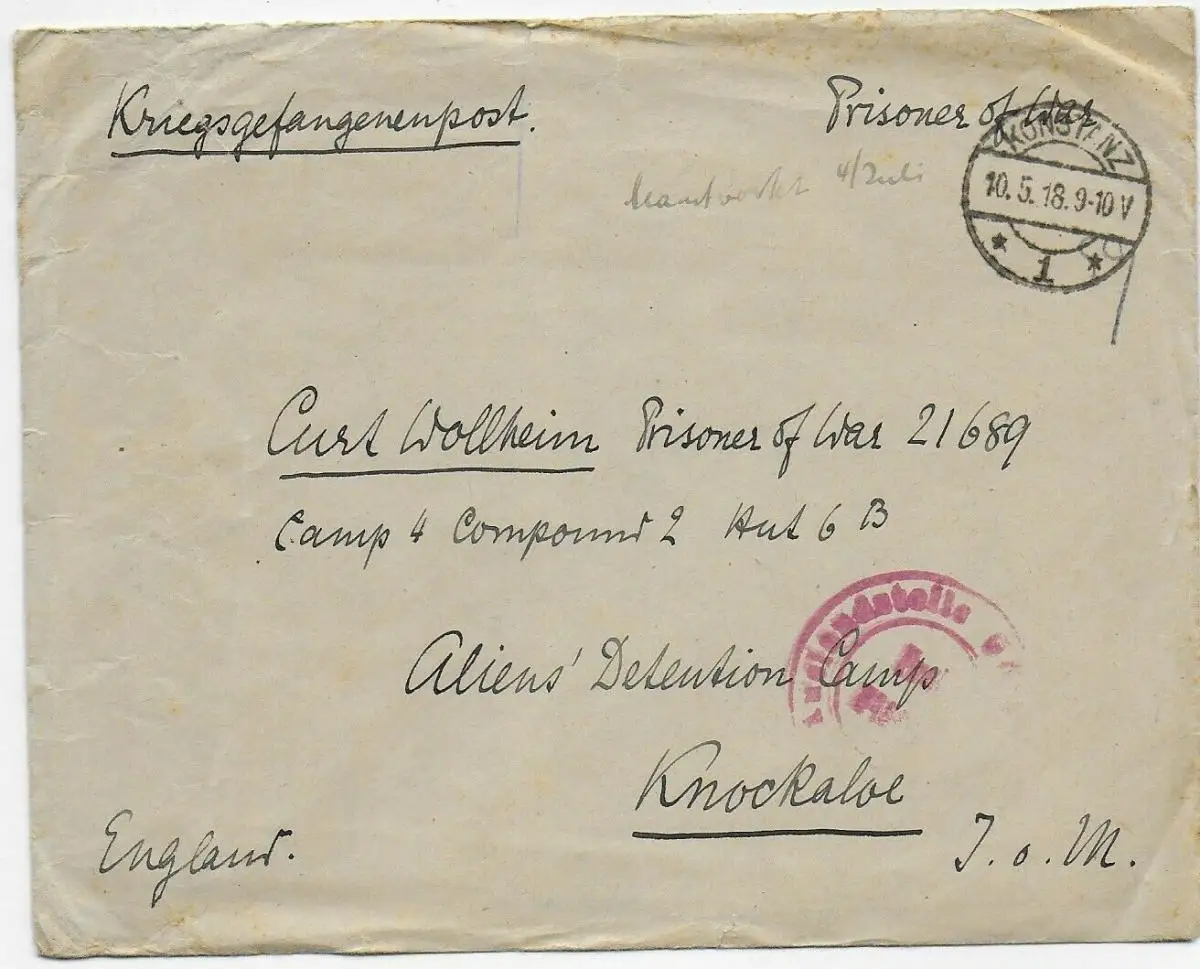 Kriegsgefangenenpost. Prisoner of War
KONSTANZ
10.5.18.9-10 V
* 1 *
beantwortet 4/Juli
Curt Wollheim Prisoner of War 21689
Camp 4 Compound 2 Hut 6 B
Auslandsstelle
Aliens' Detention Camp
Knockaloe
England. I. o. M.